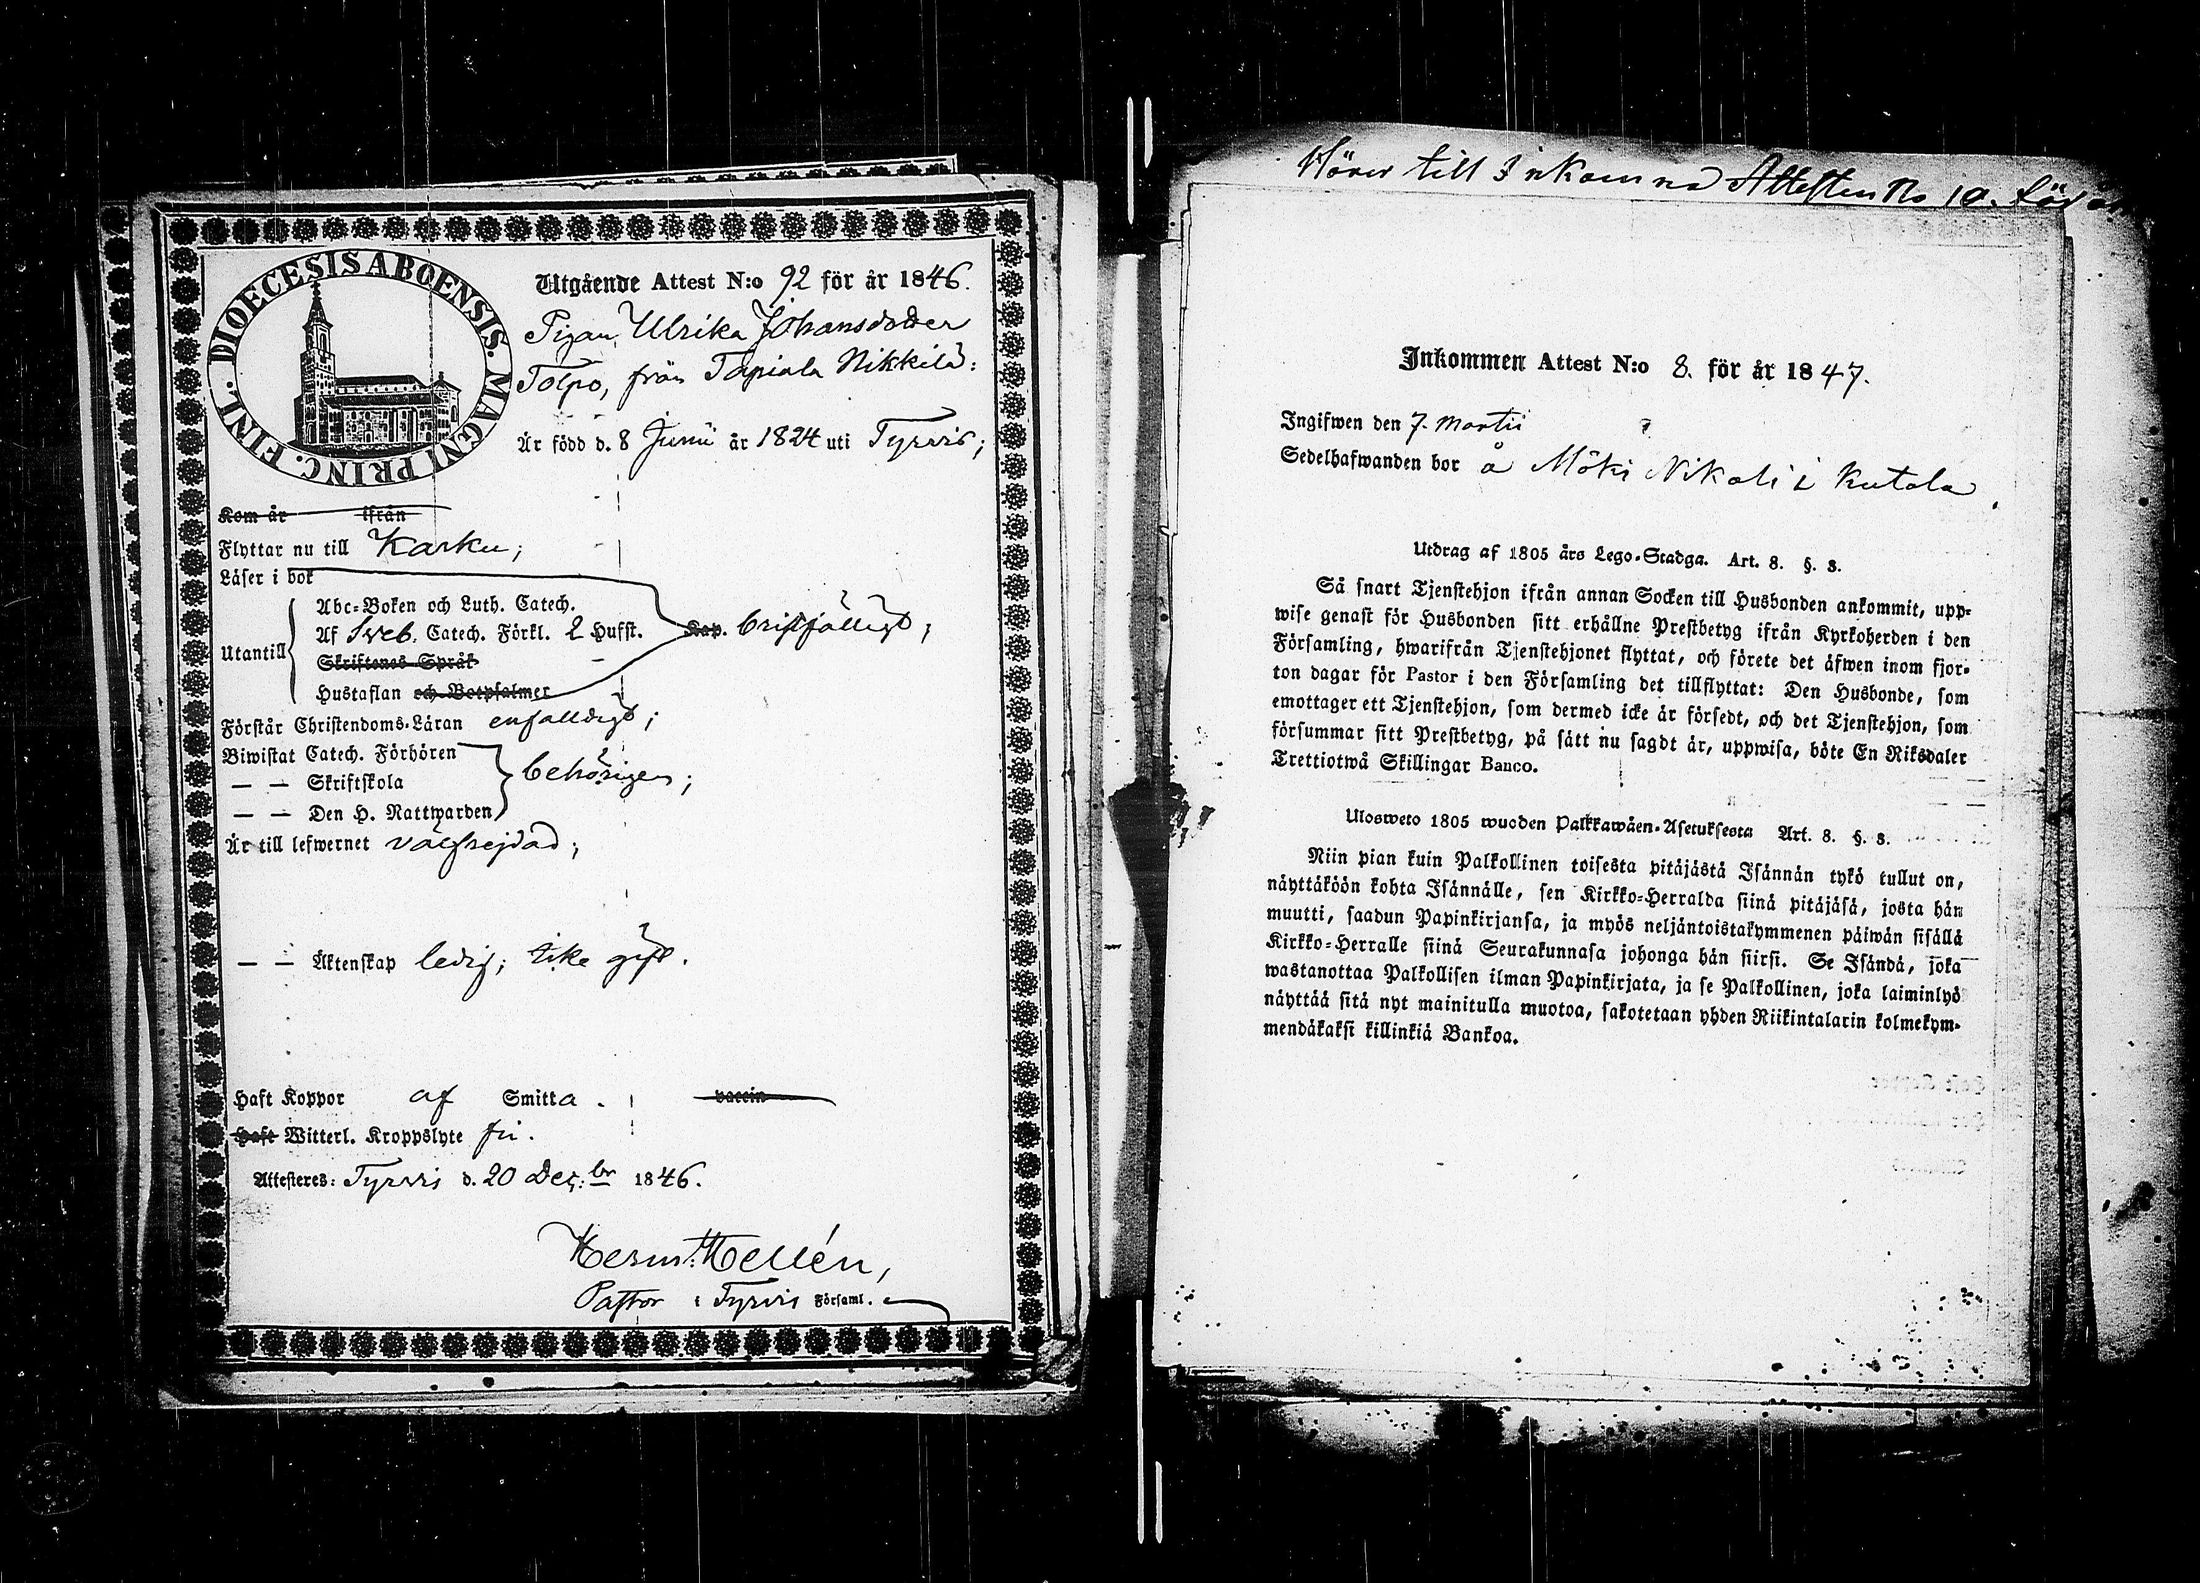 DIOECESIS ABOENSIS. MAGNI PRINC. FINL.
Utgående Attest N:o 92 för år 1846.
Pigan Ulrika Johansdotter
Tolpo, från Tapiala Nikkilä:
Är född d. 8 Junii år 1824 uti Tyrvis;
Kom år ifrån
Flyttar nu till Karku;
Läser i bok
Utantill
Abc-Boken och Luth. Catech.
Af Sveb. Catech. Förkl. 2 Hufst. Kap. bristfälligt;
Skriftenes Språk
Hustaflan och Botpsalmer
Förstår Christendoms-Läran enfaldigt;
Biwistat Catech. Förhören
— — Skriftskola behörigen;
— — Den H. Nattwarden
Är till lefwernet välfrejdad;
— — Äktenskap ledig; icke gift.
Haft Koppor af Smitta. vaccin
Haft Witterl. Kroppslyte fri.
Attesteres: Tyrvis d. 20 Dec:br 1846.
Herm: Hellén,
Pastor i Tyrvis Församl.
Hörer till Inkomna Attesten No 10. för
Inkommen Attest N:o 8. för år 1847.
Ingifwen den 7. Martii
Sedelhafwanden bor å Möki Nikali i Kutala
Utdrag af 1805 års Lego-Stadga. Art. 8. §. 3.
Så snart Tjenstehjon ifrån annan Socken till Husbonden ankommit, upp-
wise genast för Husbonden sitt erhållne Prestbetyg ifrån Kyrkoherden i den
Församling, hwarifrån Tjenstehjonet flyttat, och förete det äfwen inom fjor-
ton dagar för Pastor i den Församling det tillflyttat: Den Husbonde, som
emottager ett Tjenstehjon, som dermed icke är försedt, och det Tjenstehjon, som
försummar sitt Prestbetyg, på sätt nu sagdt är, uppwisa, böte En Riksdaler
Trettiotwå Skillingar Banco.
Ulosweto 1805 wuoden Palkkawäen-Asetuksesta Art. 8. §. 3.
Niin pian kuin Palkollinen toisesta pitäjästä Isännän tykö tullut on,
näyttäköön kohta Isännälle, sen Kirkko-Herralda siinä pitäjäsä, josta hän
muutti, saadun Papinkirjansa, ja myös neljäntoistakymmenen päiwän sisällä
Kirkko-Herralle siinä Seurakunnasa johonga hän siirsi. Se Isändä, joka
wastanottaa Palkollisen ilman Papinkirjata, ja se Palkollinen, joka laiminlyö
näyttää sitä nyt mainitulla muotoa, sakotetaan yhden Riikintalarin kolmekym-
mendäkaksi killinkiä Bankoa.